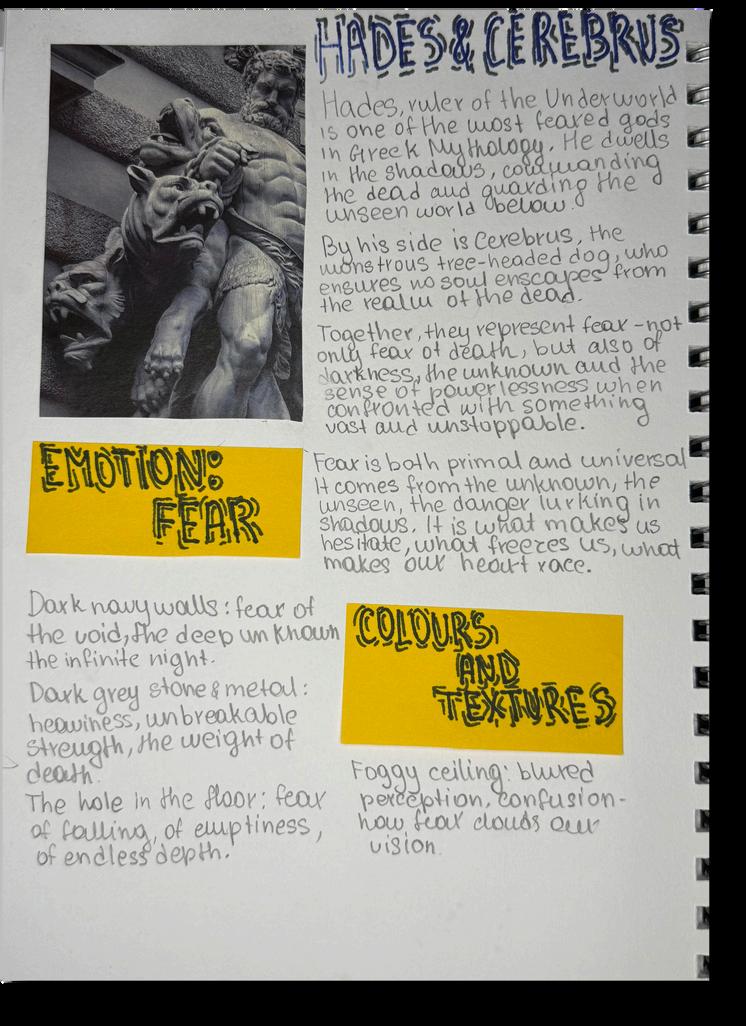 HADES & CEREBRUS
Hades, ruler of the Underworld
is one of the most feared gods
in Greek Mythology. He dwells
in the shadows, commanding
the dead and guarding the
unseen world below.
By his side is Cerebrus, the
monstrous tree-headed dog, who
ensures no soul enscapes from
the realm of the dead.
Together, they represent fear - not
only fear of death, but also of
darkness, the unknown and the
sense of powerlessness when
confronted with something
vast and unstoppable.
EMOTION:
FEAR
Fear is both primal and universal
It comes from the unknown, the
unseen, the danger lurking in
shadows. It is what makes us
hesitate, what freezes us, what
makes our heart race.
Dark navy walls: fear of
the void, the deep unknown
the infinite night.
Dark grey stone & metal:
heaviness, unbreakable
strength, the weight of
death.
The hole in the floor: fear
of falling, of emptiness,
of endless depth.
COLOURS
AND
TEXTURES
Foggy ceiling: blured
perception, confusion-
how fear clouds our
vision.